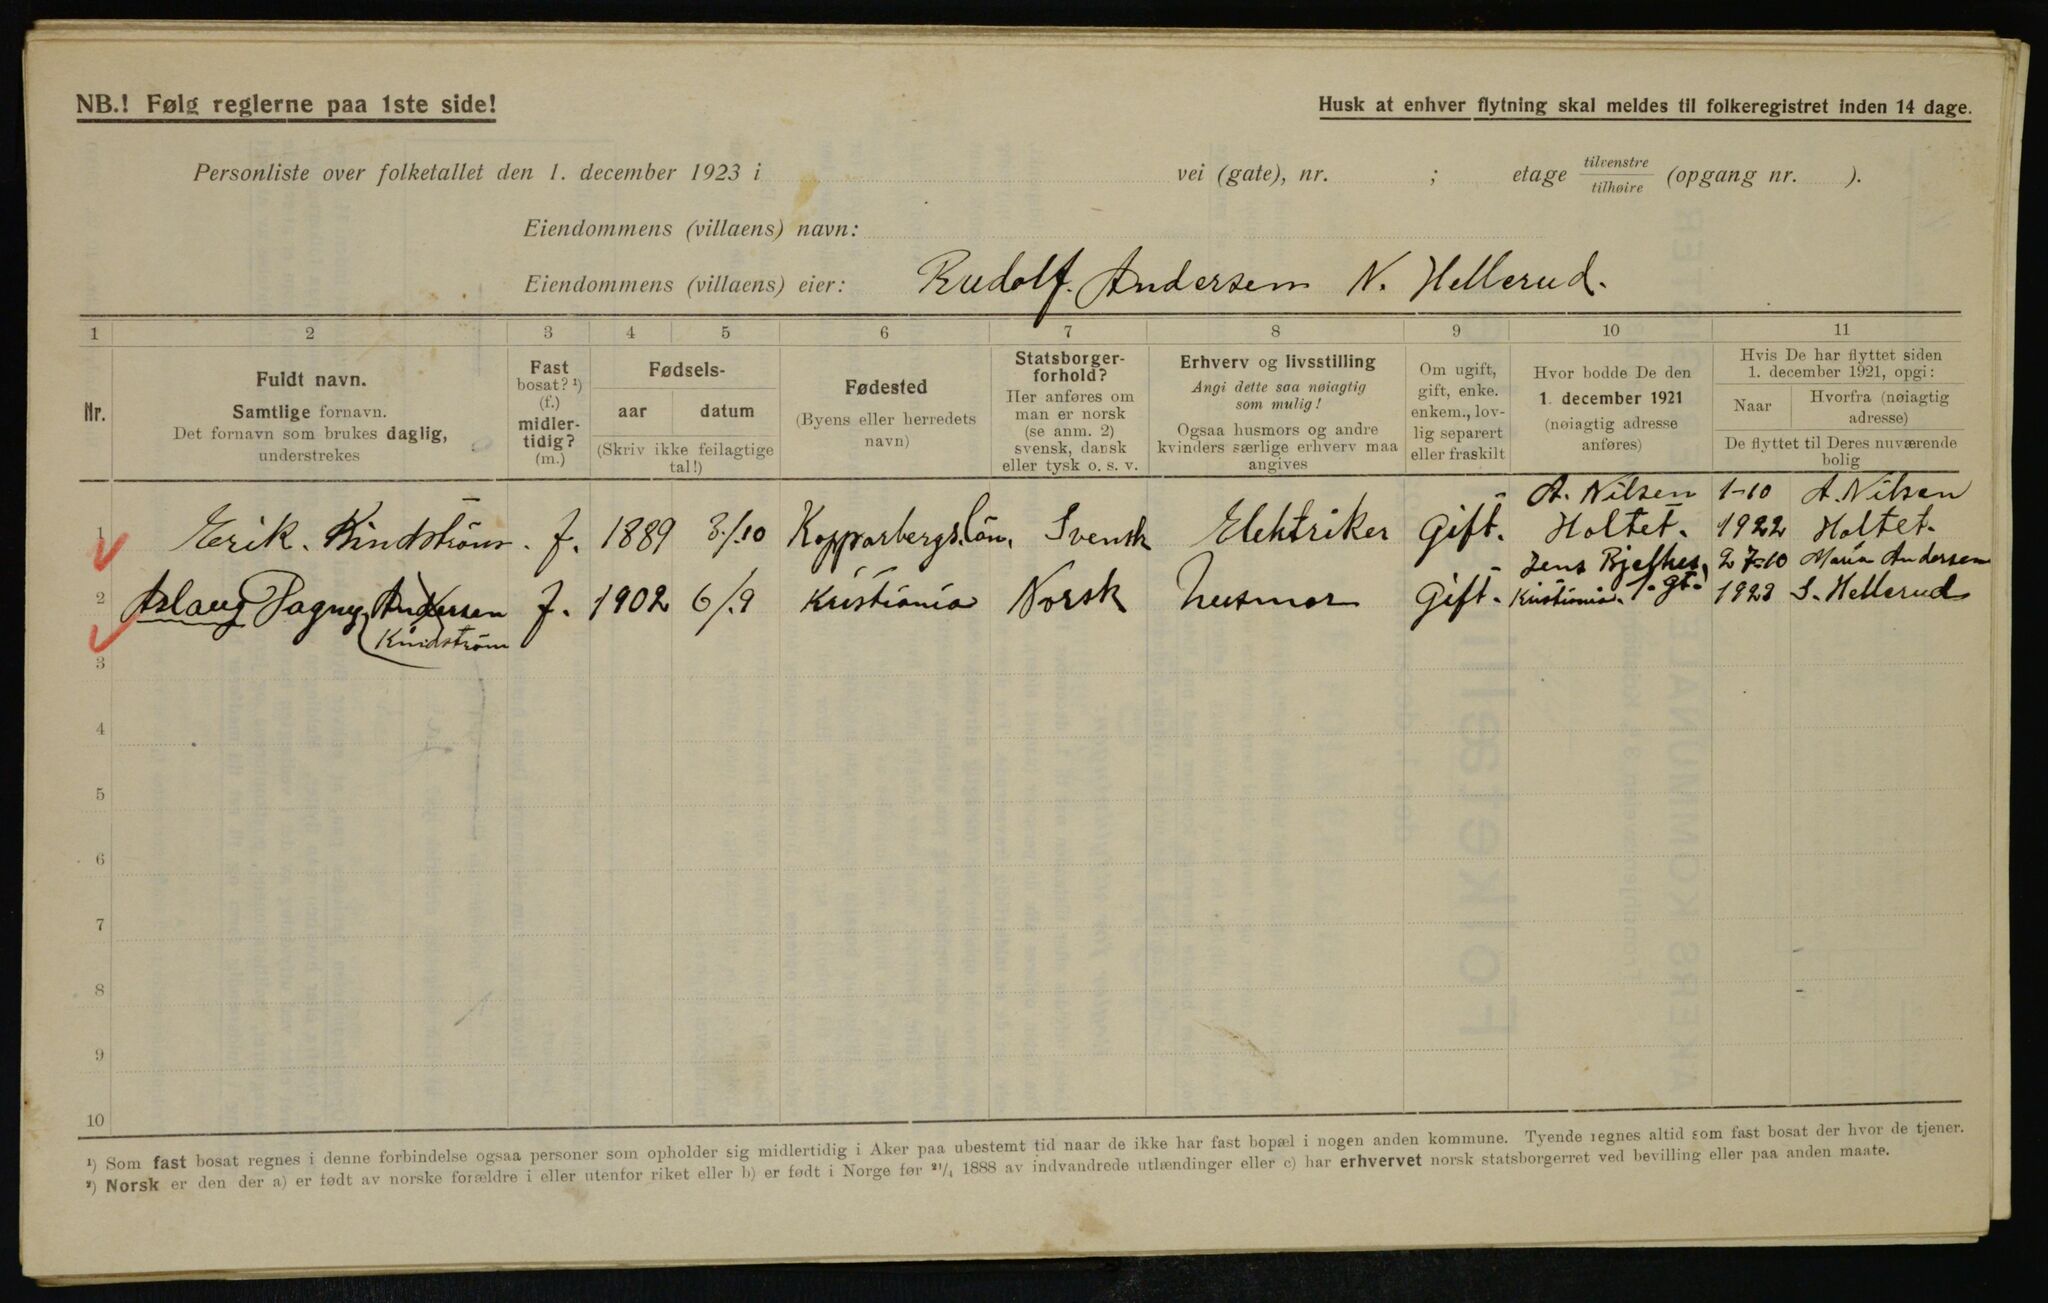 NB.! Følg reglerne paa 1ste side!
Husk at enhver flytning skal meldes til folkeregistret inden 14 dage.
Personliste over folketallet den 1. december 1923 i vei (gate), nr. ; etage tilvenstre/tilhøire (opgang nr. ).
Eiendommens (villaens) navn:
Eiendommens (villaens) eier: Rudolf. Andersen N. Hellerud.
1 2 3 4 5 6 7 8 9 10 11
Nr.
Fuldt navn.
Samtlige fornavn.
Det fornavn som brukes daglig,
understrekes
Fast
bosat? ¹)
(f.)
midler-
tidig?
(m.)
Fødsels-
aar datum
(Skriv ikke feilagtige
tal!)
Fødested
(Byens eller herredets
navn)
Statsborger-
forhold?
Her anføres om
man er norsk
(se anm. 2)
svensk, dansk
eller tysk o. s. v.
Erhverv og livsstilling
Angi dette saa nøiagtig
som mulig!
Ogsaa husmors og andre
kvinders særlige erhverv maa
angives
Om ugift,
gift, enke.
enkem., lov-
lig separert
eller fraskilt
Hvor bodde De den
1. december 1921
(nøiagtig adresse
anføres)
Hvis De har flyttet siden
1. december 1921, opgi:
Naar Hvorfra (nøiagtig
adresse)
De flyttet til Deres nuværende
bolig
A. Nilsen 1-10 A. Nilsen
1 Erik. Kindström. f. 1889 3/10 Kopparbergs.län. Svensk Elektriker Gift. Holtet. 1922 Holtet.
Jens Bjelkes 27-10 Maria Andersen
2 Aslaug Dagny Andersen f. 1902 6/9 Kristiania Norsk husmor Gift. Kristiania. gt. 1923 S. Hellerud
Kindstrøm
3
4
5
6
7
8
9
10
¹) Som fast bosat regnes i denne forbindelse ogsaa personer som opholder sig midlertidig i Aker paa ubestemt tid naar de ikke har fast bopæl i nogen anden kommune. Tyende regnes altid som fast bosat der hvor de tjener.
²) Norsk er den der a) er født av norske forældre i eller utenfor riket eller b) er født i Norge før ²¹/₄ 1888 av indvandrede utlændinger eller c) har erhvervet norsk statsborgerret ved bevilling eller paa anden maate.